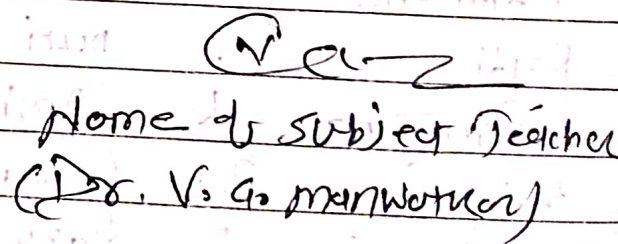 Name of subject Teacher
(Dr. V. G. Manwatkar)